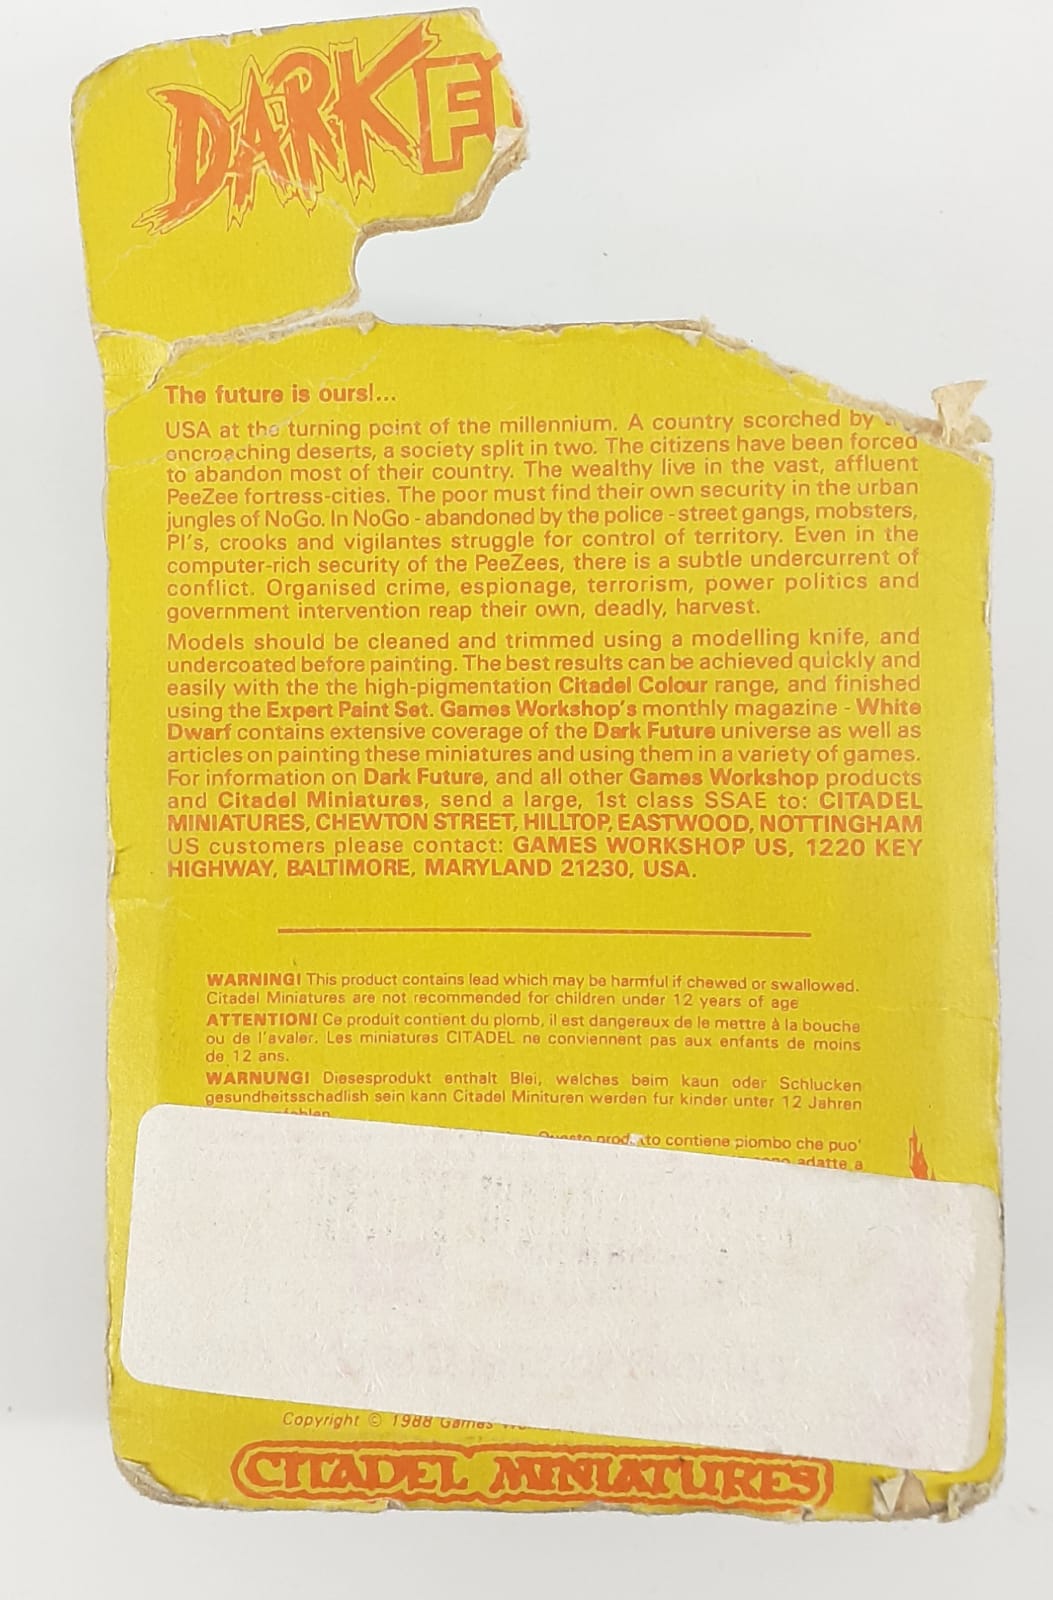 DARK F
The future is ours!...
USA at the turning point of the millennium. A country scorched by
encroaching deserts, a society split in two. The citizens have been forced
to abandon most of their country. The wealthy live in the vast, affluent
PeeZee fortress-cities. The poor must find their own security in the urban
jungles of NoGo. In NoGo - abandoned by the police - street gangs, mobsters,
PI's, crooks and vigilantes struggle for control of territory. Even in the
computer-rich security of the PeeZees, there is a subtle undercurrent of
conflict. Organised crime, espionage, terrorism, power politics and
government intervention reap their own, deadly, harvest.
Models should be cleaned and trimmed using a modelling knife, and
undercoated before painting. The best results can be achieved quickly and
easily with the the high-pigmentation Citadel Colour range, and finished
using the Expert Paint Set. Games Workshop's monthly magazine - White
Dwarf contains extensive coverage of the Dark Future universe as well as
articles on painting these miniatures and using them in a variety of games.
For information on Dark Future, and all other Games Workshop products
and Citadel Miniatures, send a large, 1st class SSAE to: CITADEL
MINIATURES, CHEWTON STREET, HILLTOP, EASTWOOD, NOTTINGHAM
US customers please contact: GAMES WORKSHOP US, 1220 KEY
HIGHWAY, BALTIMORE, MARYLAND 21230, USA.
WARNING! This product contains lead which may be harmful if chewed or swallowed.
Citadel Miniatures are not recommended for children under 12 years of age
ATTENTION! Ce produit contient du plomb, il est dangereux de le mettre à la bouche
ou de l'avaler. Les miniatures CITADEL ne conviennent pas aux enfants de moins
de 12 ans.
WARNUNG! Diesesprodukt enthalt Blei, welches beim kaun oder Schlucken
gesundheitsschadlish sein kann Citadel Minituren werden fur kinder unter 12 Jahren
contiene piombo che puo'
adatte a
Copyright © 1988 Games
CITADEL MINIATURES